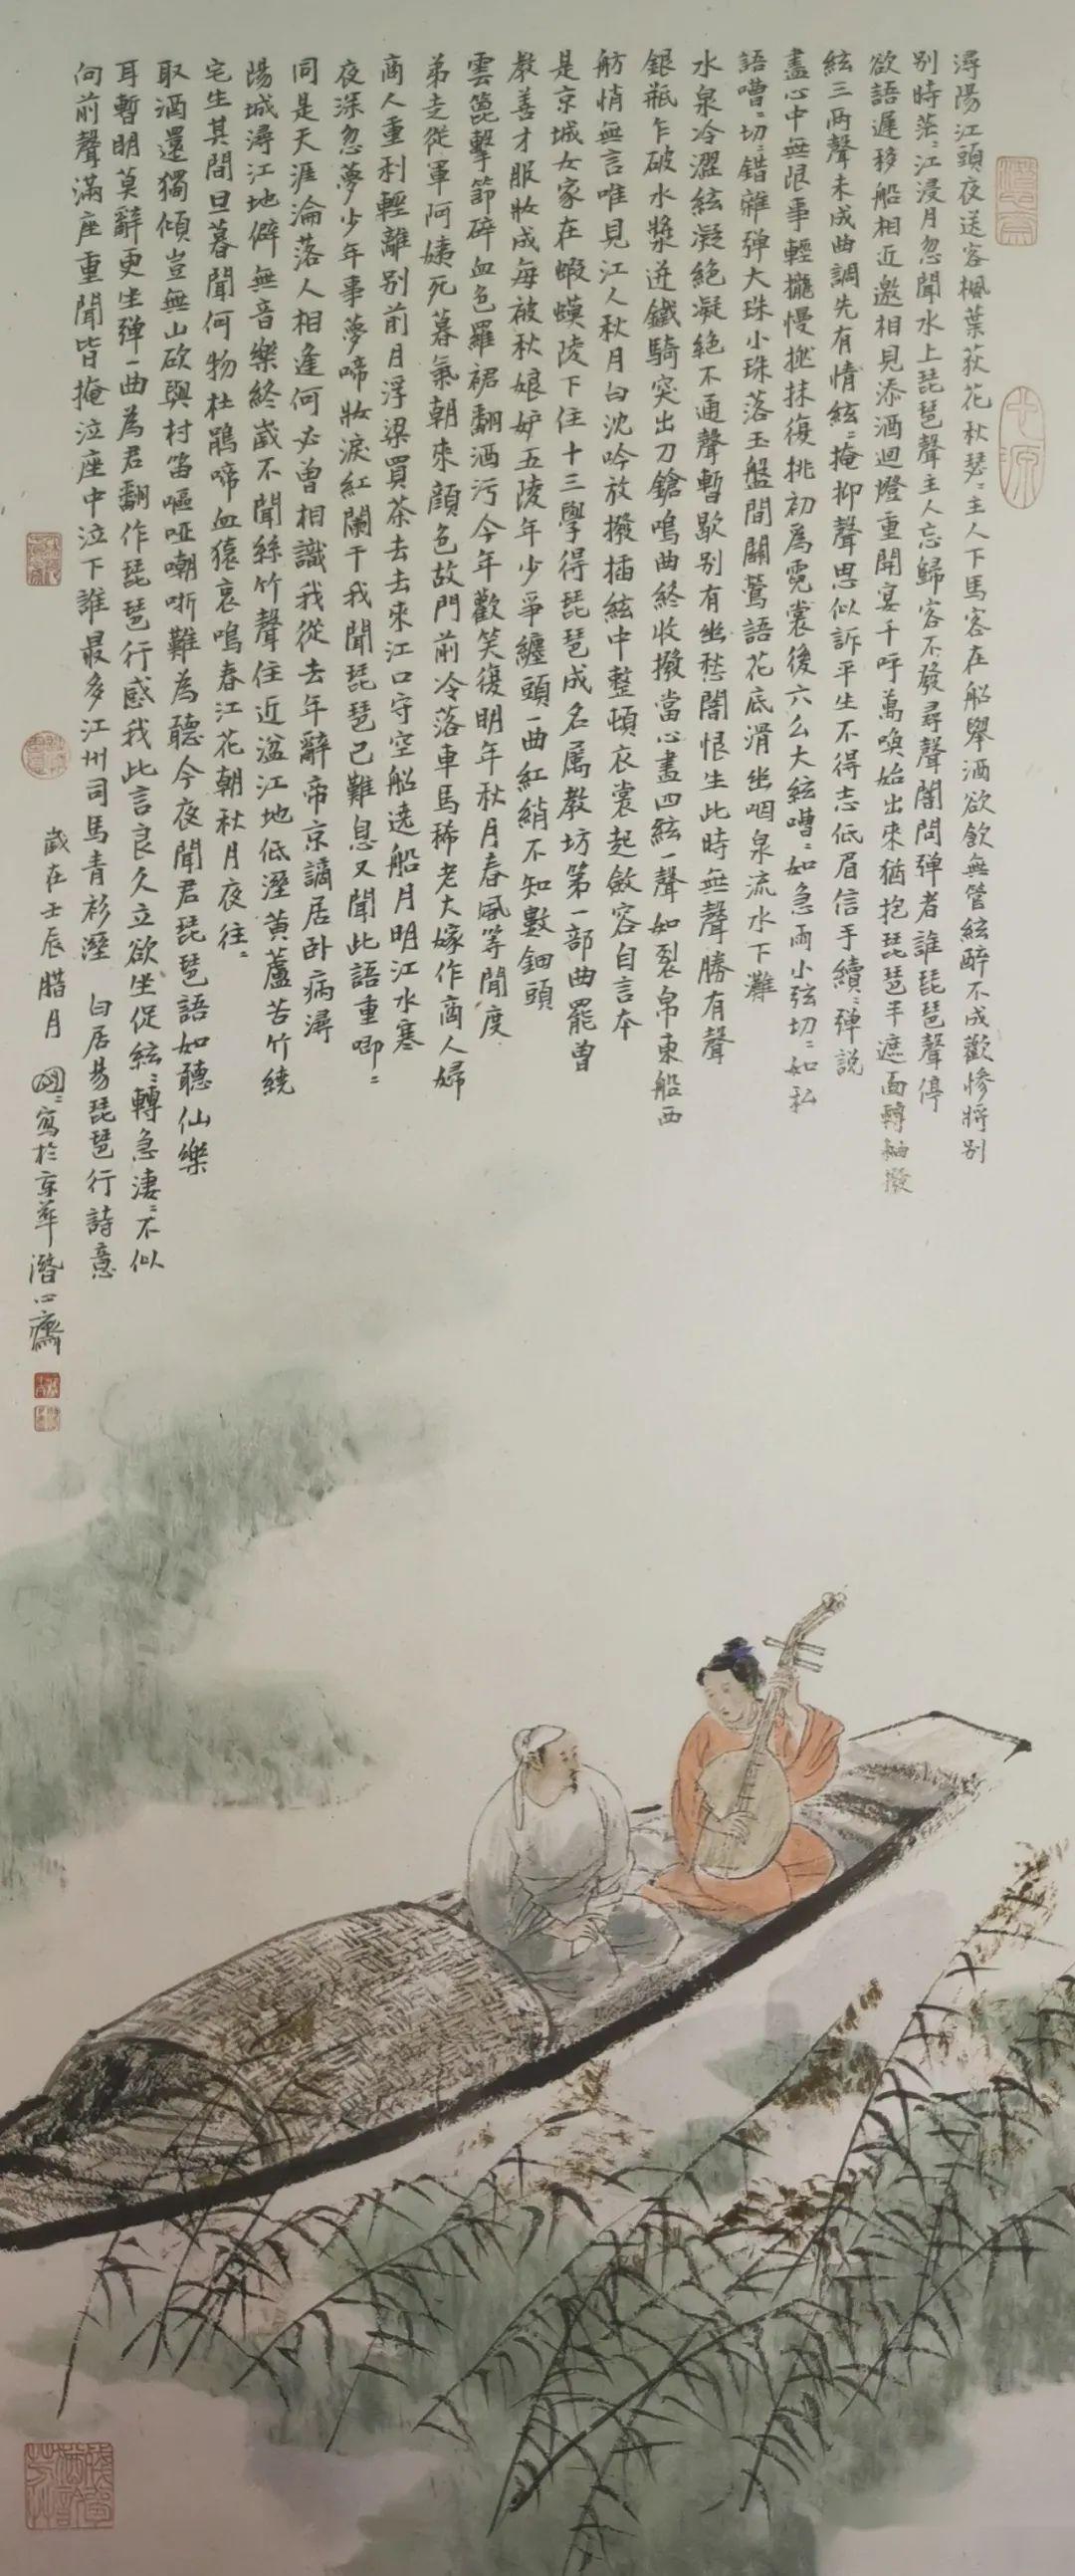 潯陽江頭夜送客楓葉荻花秋瑟〻主人下馬客在船舉酒欲飲無管絃醉不成歡慘將別
別時茫〻江浸月忽聞水上琵琶聲主人忘歸客不發尋聲闇問彈者誰琵琶聲停
欲語遲移船相近邀相見添酒迴燈重開宴千呼萬喚始出來猶抱琵琶半遮面轉軸撥
絃三兩聲未成曲調先有情絃〻掩抑聲思似訴平生不得志低眉信手續〻彈說
盡心中無限事輕攏慢撚抹復挑初為霓裳後六么大絃嘈〻如急雨小弦切〻如私
語嘈〻切〻錯雜彈大珠小珠落玉盤間關鶯語花底滑幽咽泉流水下灘
水泉冷澀絃凝絕凝絕不通聲暫歇別有幽愁闇恨生此時無聲勝有聲
銀瓶乍破水漿迸鐵騎突出刀鎗鳴曲終收撥當心畫四絃一聲如裂帛東船西
舫悄無言唯見江人秋月白沈吟放撥插絃中整頓衣裳起斂容自言本
是京城女家在蝦蟆陵下住十三學得琵琶成名屬教坊第一部曲罷曾
教善才服妝成每被秋娘妒五陵年少爭纏頭一曲紅綃不知數鈿頭
雲篦擊節碎血色羅裙翻酒污今年歡笑復明年秋月春風等閒度
弟走從軍阿姨死暮氣朝來顏色故門前冷落車馬稀老大嫁作商人婦
商人重利輕離別前月浮梁買茶去去來江口守空船遶船月明江水寒
夜深忽夢少年事夢啼妝淚紅闌干我聞琵琶已難息又聞此語重唧〻
同是天涯淪落人相逢何必曾相識我從去年辭帝京謫居卧病潯
陽城潯江地僻無音樂終歲不聞絲竹聲住近湓江地低溼黃蘆苦竹繞
宅生其間旦暮聞何物杜鵑啼血猿哀鳴春江花朝秋月夜往〻
取酒還獨傾豈無山歌與村笛嘔啞嘲哳難為聽今夜聞君琵琶語如聽仙樂
耳暫明莫辭更坐彈一曲為君翻作琵琶行感我此言良久立欲坐促絃〻轉急淒〻不似
向前聲滿座重聞皆掩泣座中泣下誰最多江州司馬青衫溼 白居易琵琶行詩意
歲在壬辰腊月 寫於京華潛心齋
平原